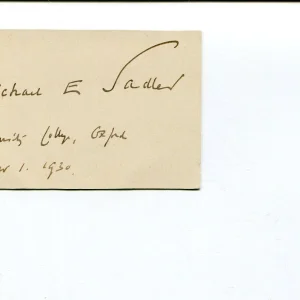 ichael E Sadler
College, Oxford
1. 1930